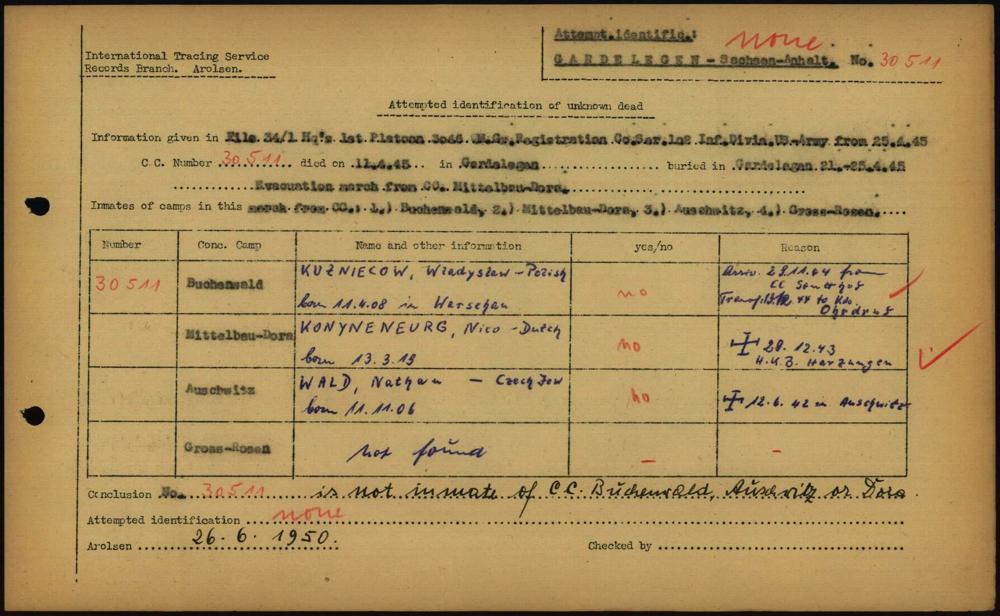 International Tracing Service
Records Branch. Arolsen.
Attempt.identific.: none
GARDELEGEN - Sachsen-Anhalt. No. 30511
Attempted identification of unknown dead
Information given in File 34/1 Hq's 1st Platoon 3046 Registration Co.Ser.102 Inf.Divin.US-Army from 25.4.45
C.C. Number 30511 died on 11.4.45 in Gardelegen buried in Gardelegen 21.-25.4.45
Evacuation march from CC. Mittelbau-Dora.
Inmates of camps in this march from CC.: 1.) Buchenwald, 2.) Mittelbau-Dora, 3.) Auschwitz, 4.) Gross-Rosen.
Number Conc. Camp Name and other information yes/no Reason
30511 Buchenwald KUZNIECOW, Wladyslaw - Polish born 11.4.08 in Warschau no Arriv. 29.11.44 from CC Transf. 44 to Kdo. Ohrdruf
Mittelbau-Dora KONYNENEURG, Nico - Dutch born 13.3.19 no 28.12.43 H.K.B. Harzungen
Auschwitz WALD, Nathan - Czech Jew born 11.11.06 no 12.6.42 in Auschwitz
Gross-Rosen not found - -
Conclusion No. 30511 is not inmate of C.C. Buchenwald, Auschwitz or Dora.
Attempted identification none
Arolsen 26.6.1950. Checked by